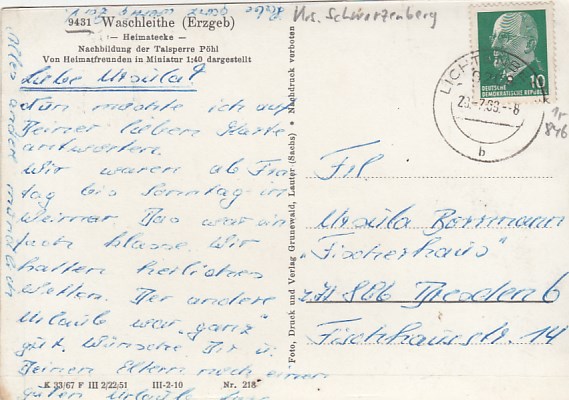 Krs. Schwarzenberg
9431 Waschleithe (Erzgeb)
— Heimatecke —
Nachbildung der Talsperre Pöhl
Von Heimatfreunden in Miniatur 1:40 dargestellt
Liebe Ursula!
Nun möchte ich auf
Deiner lieben Karte
antworten.
Wir waren ab Frei
tag bis Sonntag in
Weimar. Das war ein
fach klasse. Wir
hatten herrliches
Wetter. Der andere
Urlaub war „ganz"
gut. Wünsche Dir u.
Deinen Eltern noch einen
guten Urlaub
Alles andere mündlich
K 33/67 F III 2/22/51 III-2-10 Nr. 218
Foto, Druck und Verlag Grunewald, Lauter (Sachs) • Nachdruck verboten
DEUTSCHE
DEMOKRATISCHE REPUBLIK
10
b
Frl.
Ursula Borrmann
„Fischerhaus"
z.Zt 806 Dresden 6
Fischhausstr. 14